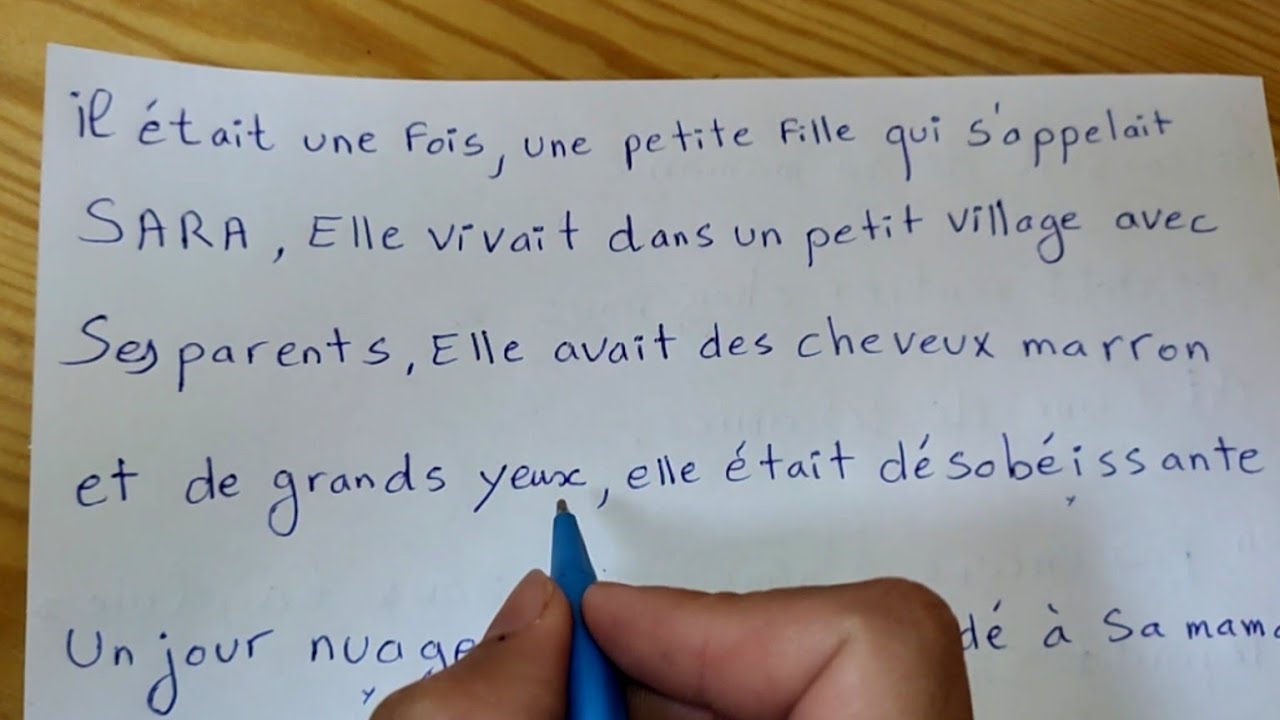 il était une Fois, une petite Fille qui s'appelait
SARA, Elle vivait dans un petit village avec
Ses parents, Elle avait des cheveux marron
et de grands yeux, elle était désobéissante
Un jour à Sa